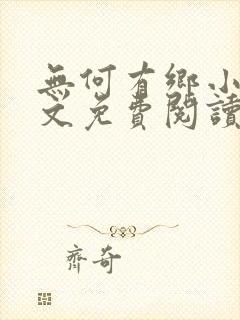 無何有鄉小
文免費閱讀
齊奇